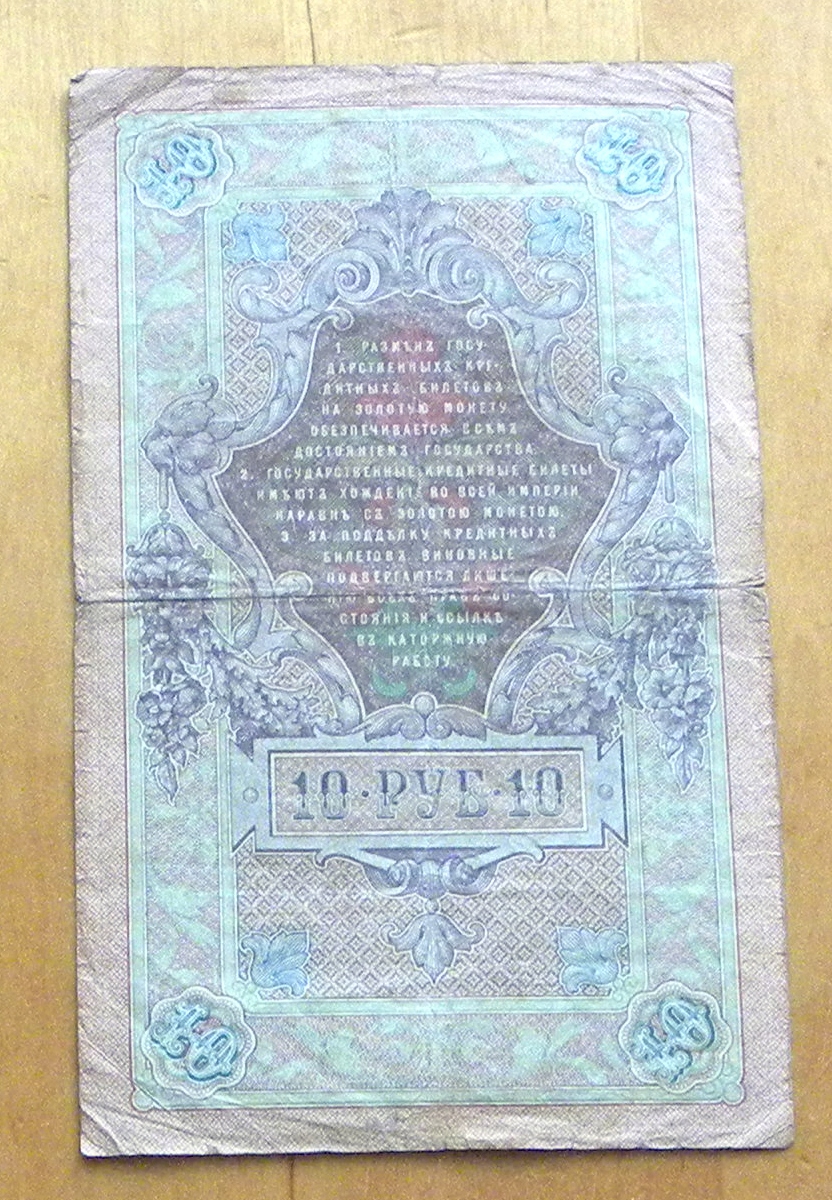 10
10
1. РАЗМѢНЪ ГОСУ-
ДАРСТВЕННЫХЪ КРЕ-
ДИТНЫХЪ БИЛЕТОВЪ
НА ЗОЛОТУЮ МОНЕТУ
ОБЕЗПЕЧИВАЕТСЯ ВСѢМЪ
ДОСТОЯНІЕМЪ ГОСУДАРСТВА.
2. ГОСУДАРСТВЕННЫЕ КРЕДИТНЫЕ БИЛЕТЫ
ИМѢЮТЪ ХОЖДЕНІЕ ВО ВСЕЙ ИМПЕРІИ
НАРАВНѢ СЪ ЗОЛОТОЮ МОНЕТОЮ.
3. ЗА ПОДДѢЛКУ КРЕДИТНЫХЪ
БИЛЕТОВЪ ВИНОВНЫЕ
ПОДВЕРГАЮТСЯ ЛИШЕ-
НІЮ ВСѢХЪ ПРАВЪ СО-
СТОЯНІЯ И ССЫЛКѢ
ВЪ КАТОРЖНУЮ
РАБОТУ.
10·РУБ·10
10
10